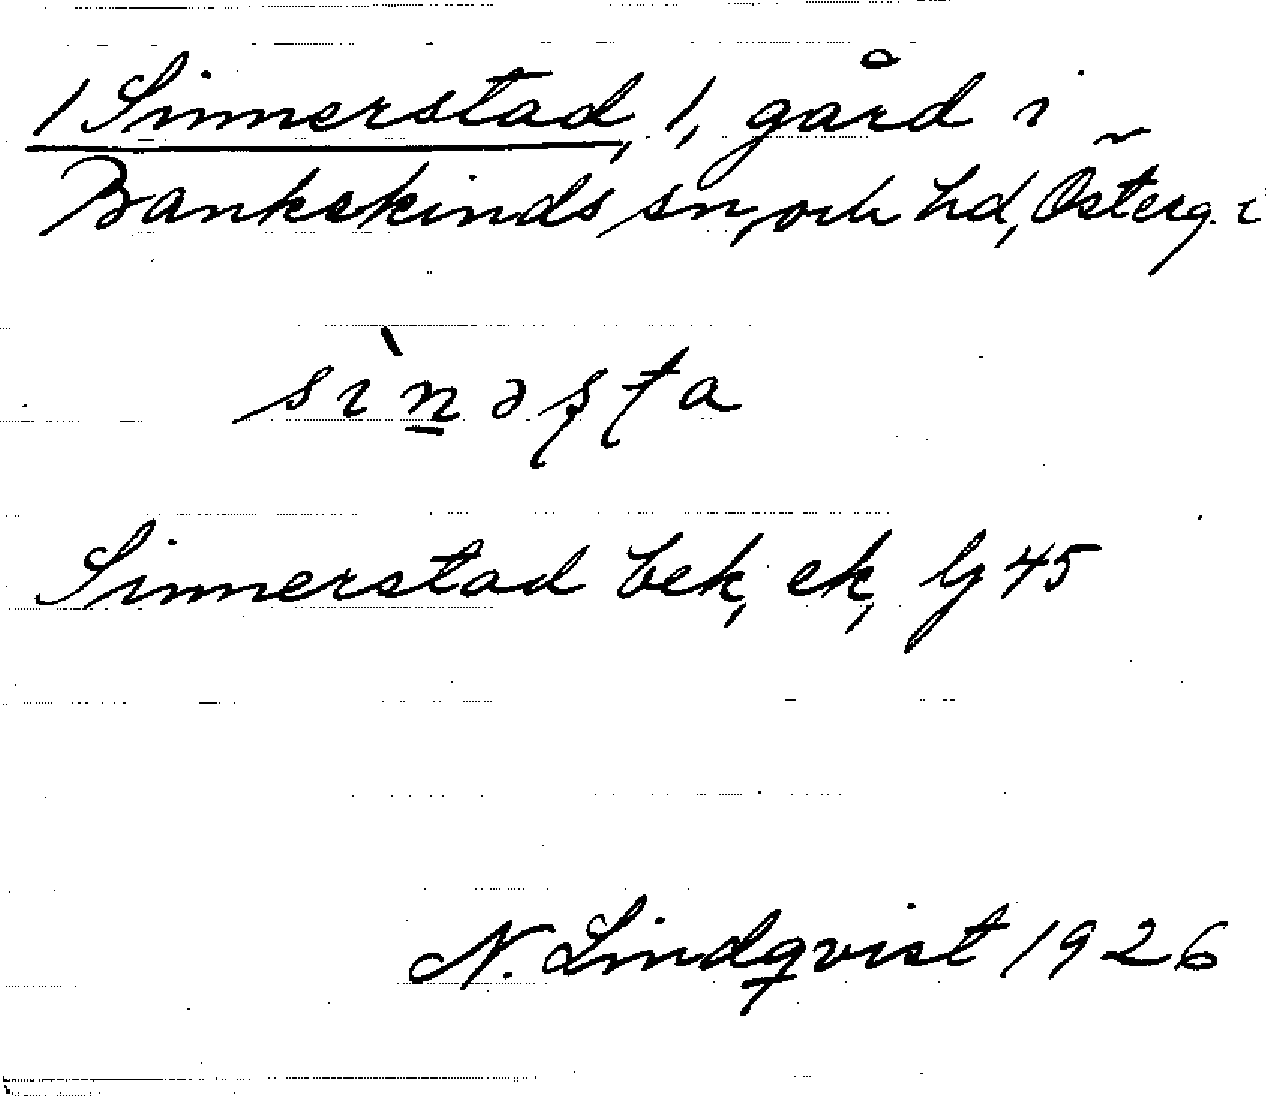 1 Sinnerstad, 1, gård i
Bankekinds sn, och hd, Österg.
Sinnerstad bek, ek, Lj 45
N. Lindqvist 1926